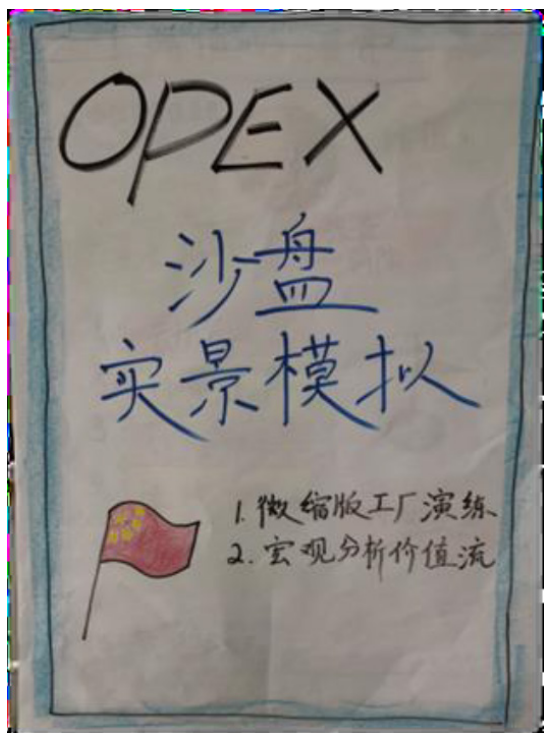 OPEX
沙盘
实景模拟
1. 微缩版工厂演练
2. 宏观分析价值流